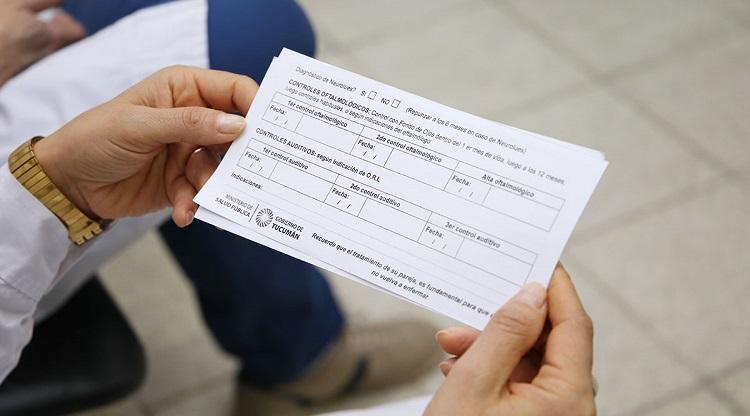 Diagnóstico de Neurolues? SI NO (Repunzar a los 6 meses en caso de Neurolues)
CONTROLES OFTALMOLÓGICOS: Control con Fondo de Ojos dentro del 1 er mes de vida, luego a los 12 meses,
luego controles habituales, o según indicaciones del oftalmólogo
1er control oftalmológico 2do control oftalmológico Alta oftalmológico
Fecha: Fecha: Fecha:
/ / / / / /
CONTROLES AUDITIVOS: según indicación da O.R.L
1er control auditivo 2do control auditivo 3er control auditivo
Fecha: Fecha: Fecha:
/ / / / / /
Indicaciones:
MINISTERIO DE
SALUD PÚBLICA
GOBIERNO DE
TUCUMÁN
Recuerde que el tratamiento de su pareja, es fundamental para que
no vuelva a enfermar